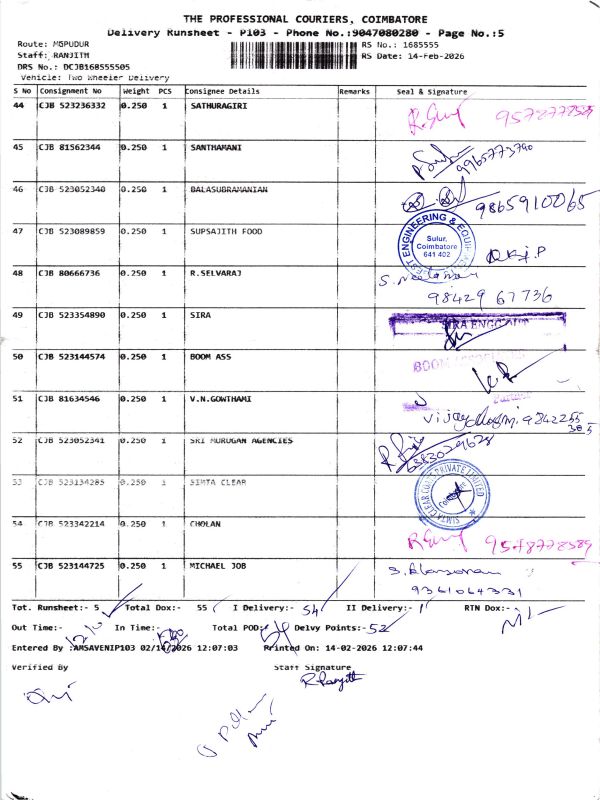 THE PROFESSIONAL COURIERS, COIMBATORE
Delivery Runsheet - P103 - Phone No.:9047080280 - Page No.:5
Route: MGPUDUR
RS No.: 1685555
Staff: RANJITH
RS Date: 14-Feb-2026
DRS No.: DCJB168555505
Vehicle: Two Wheeler Delivery
S No Consignment No Weight PCS Consignee Details Remarks Seal & Signature
44 CJB 523236332 0.250 1 SATHURAGIRI
45 CJB 81562344 0.250 1 SANTHAMANI 9965773790
46 CJB 523052340 0.250 1 BALASUBRAMANIAN 9865910065
47 CJB 523089859 0.250 1 SUPSAJITH FOOD
EST ENGINEERING & EQUIP
Sulur,
Coimbatore
641 402
48 CJB 80666736 0.250 1 R.SELVARAJ
98429 67736
49 CJB 523354890 0.250 1 SIRA
SIRA ENGG
50 CJB 523144574 0.250 1 BOOM ASS
BOOM
51 CJB 81634546 0.250 1 V.N.GOWTHAMI
52 CJB 523052341 0.250 1 SRI MURUGAN AGENCIES 6383029628
53 CJB 523134285 0.250 1 SIMTA CLEAR
SIMTA CLEAR COATS PRIVATE LIMITED
Coimbatore
54 CJB 523342214 0.250 1 CHOLAN
55 CJB 523144725 0.250 1 MICHAEL JOB
9361064331
Tot. Runsheet:- 5 Total Dox:- 55 I Delivery:- 54 II Delivery:- RTN Dox:-
Out Time:- In Time:- Total POD:- 54 Delvy Points:- 52
Entered By :AMSAVENIP103 02/14/2026 12:07:03 Printed On: 14-02-2026 12:07:44
Verified By Staff Signature
R Ranjith